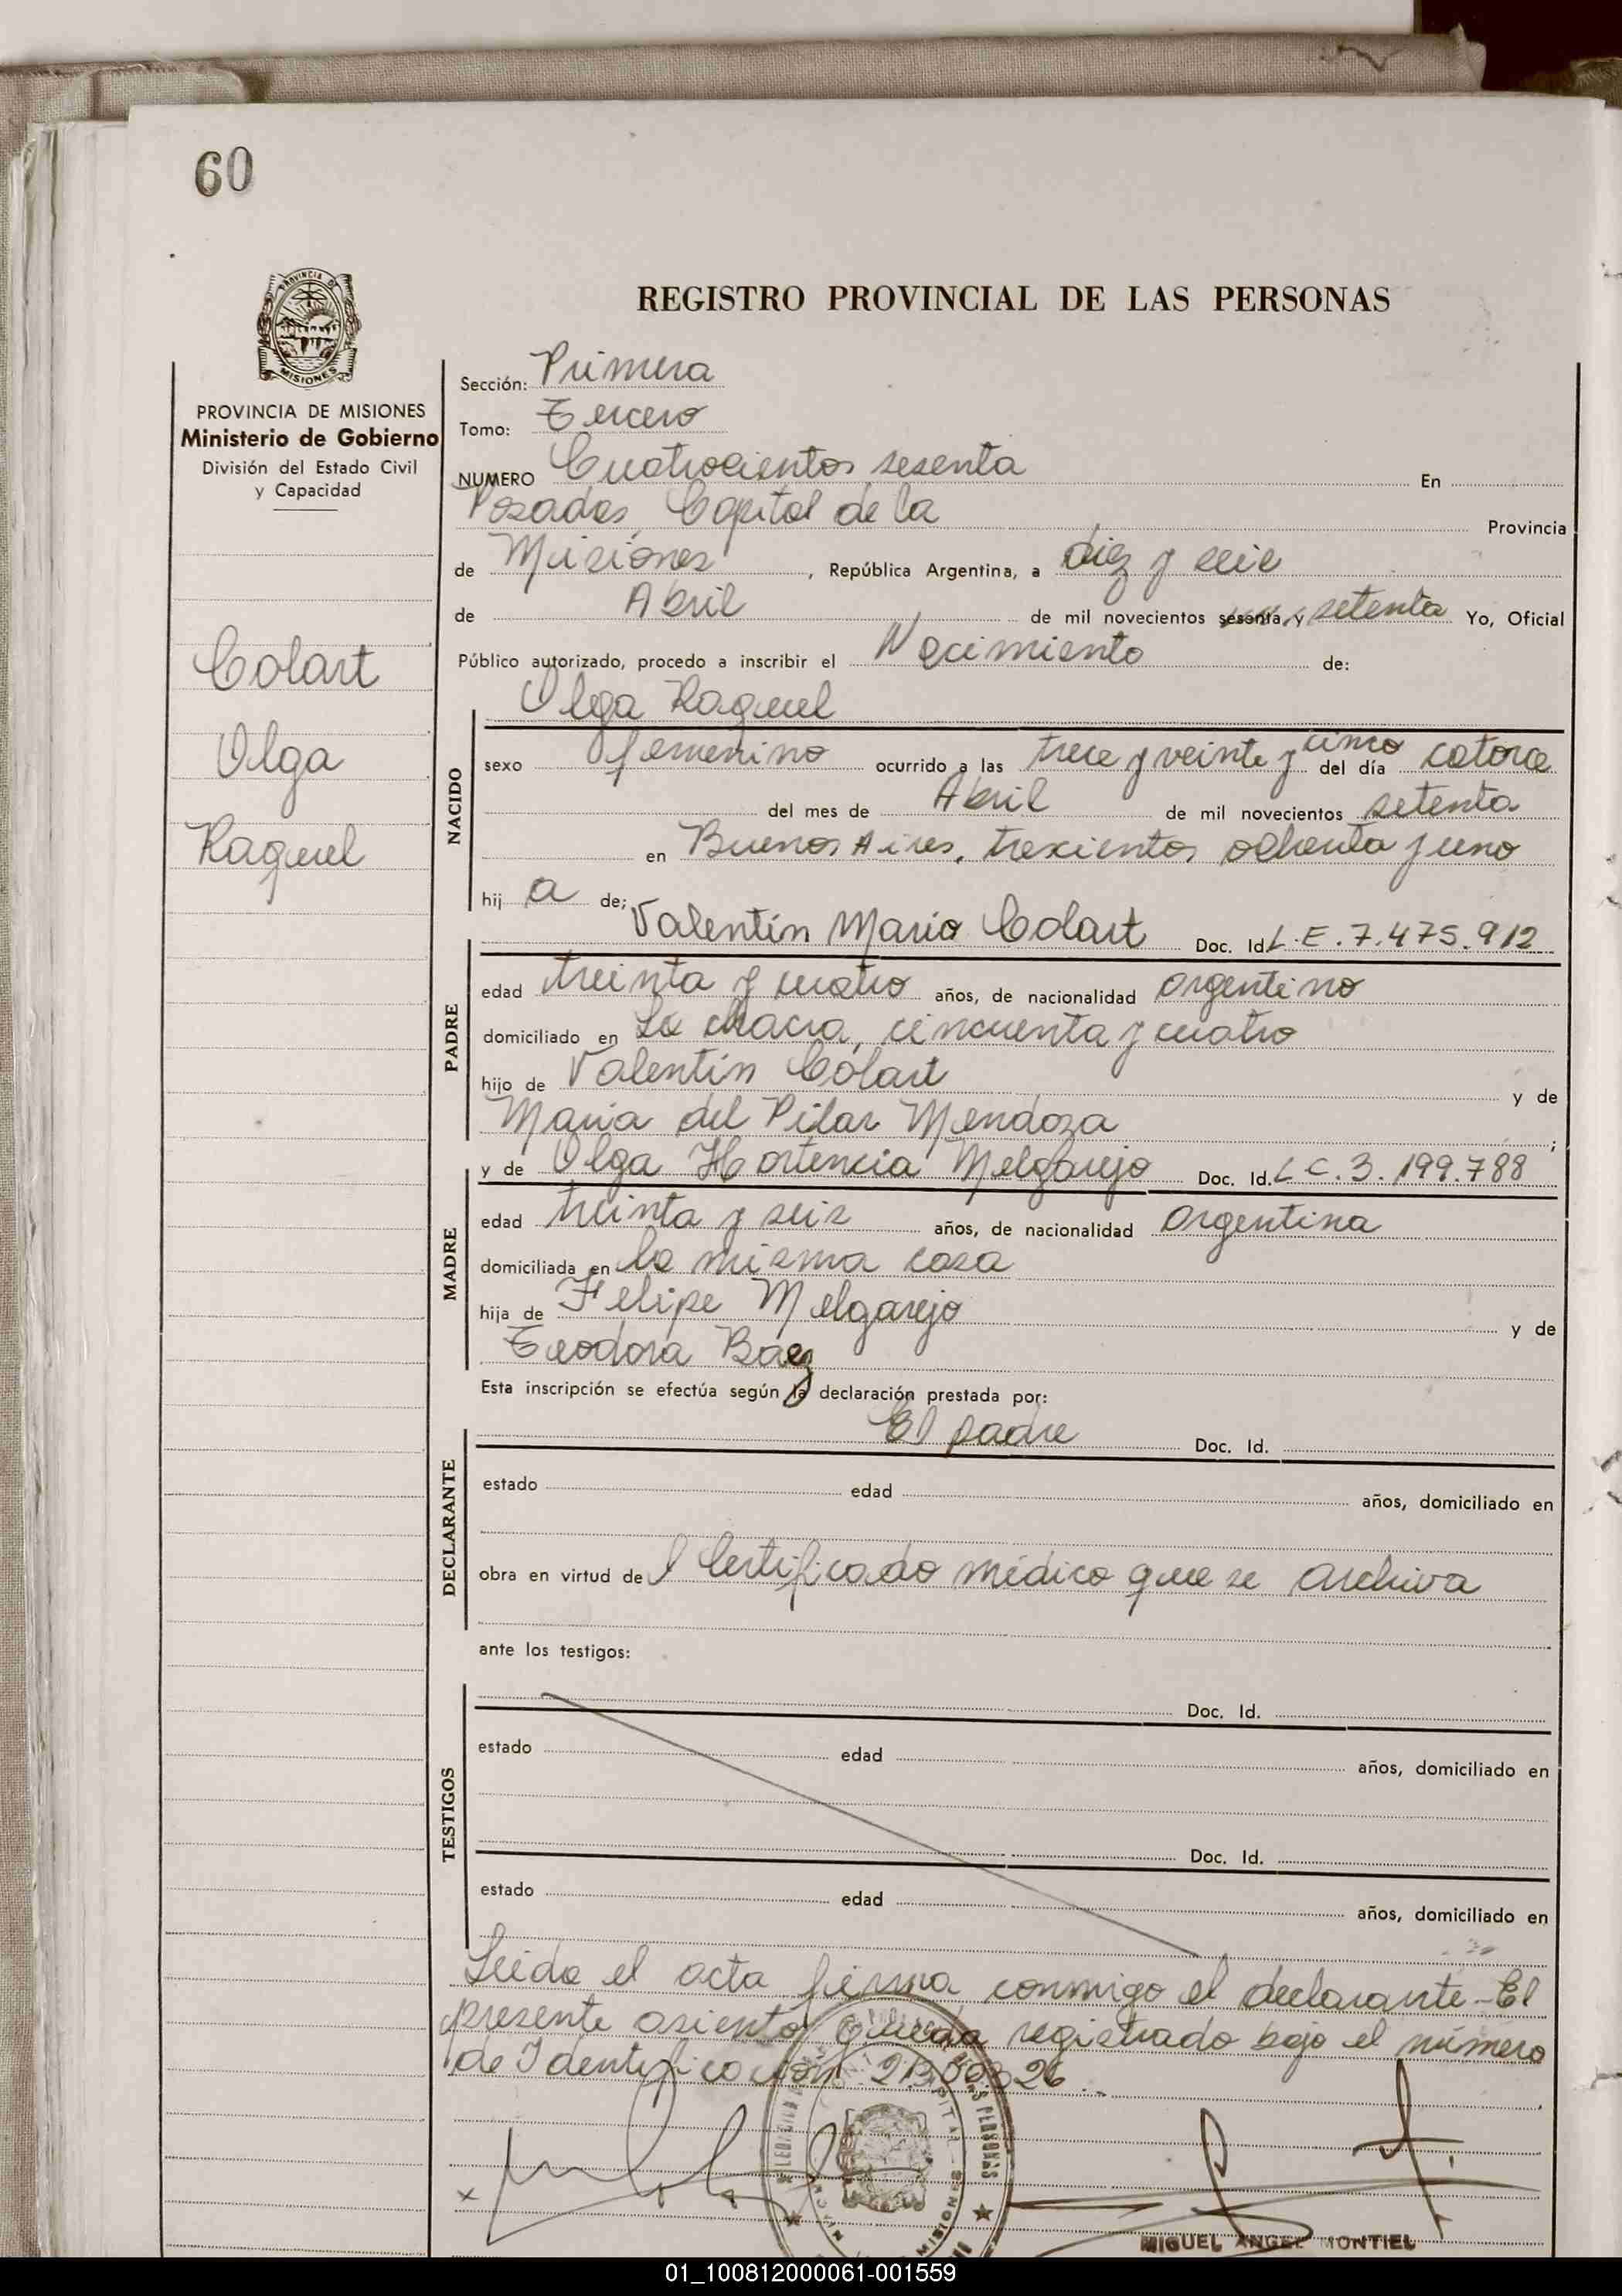 60
REGISTRO PROVINCIAL DE LAS PERSONAS
PROVINCIA DE MISIONES
Ministerio de Gobierno
División del Estado Civil
y Capacidad
Colart
Olga
Raquel
Sección: Primera
Tomo: Tercero
NUMERO Cuatrocientos sesenta En
Posadas, Capital de la Provincia
de Misiones, República Argentina, a diez y seis
de Abril de mil novecientos sesenta y setenta Yo, Oficial
Público autorizado, procedo a inscribir el Nacimiento de:
Olga Raquel
NACIDO
sexo femenino ocurrido a las trece y veinte y cinco del día catorce
del mes de Abril de mil novecientos setenta
en Buenos Aires, trescientos ochenta y uno
hij a de; Valentín Mario Colart Doc. Id. L.E. 7.475.912
PADRE
edad treinta y cuatro años, de nacionalidad argentino
domiciliado en La chacra, cincuenta y cuatro
hijo de Valentín Colart y de
Maria del Pilar Mendoza ;
y de Olga Hortencia Melgarejo Doc. Id. L C. 3.199.788
MADRE
edad treinta y seis años, de nacionalidad argentina
domiciliada en la misma casa
hija de Felipe Melgarejo y de
Teodora Baez
Esta inscripción se efectúa según la declaración prestada por:
El padre Doc. Id.
DECLARANTE
estado edad años, domiciliado en
obra en virtud del Certificado médico que se archiva
ante los testigos:
TESTIGOS
Doc. Id.
estado edad años, domiciliado en
Doc. Id.
estado edad años, domiciliado en
Leída el acta firma conmigo el declarante. El
presente asiento queda registrado bajo el número
de Identificación
MIGUEL ANGEL MONTIEL
01_100812000061-001559